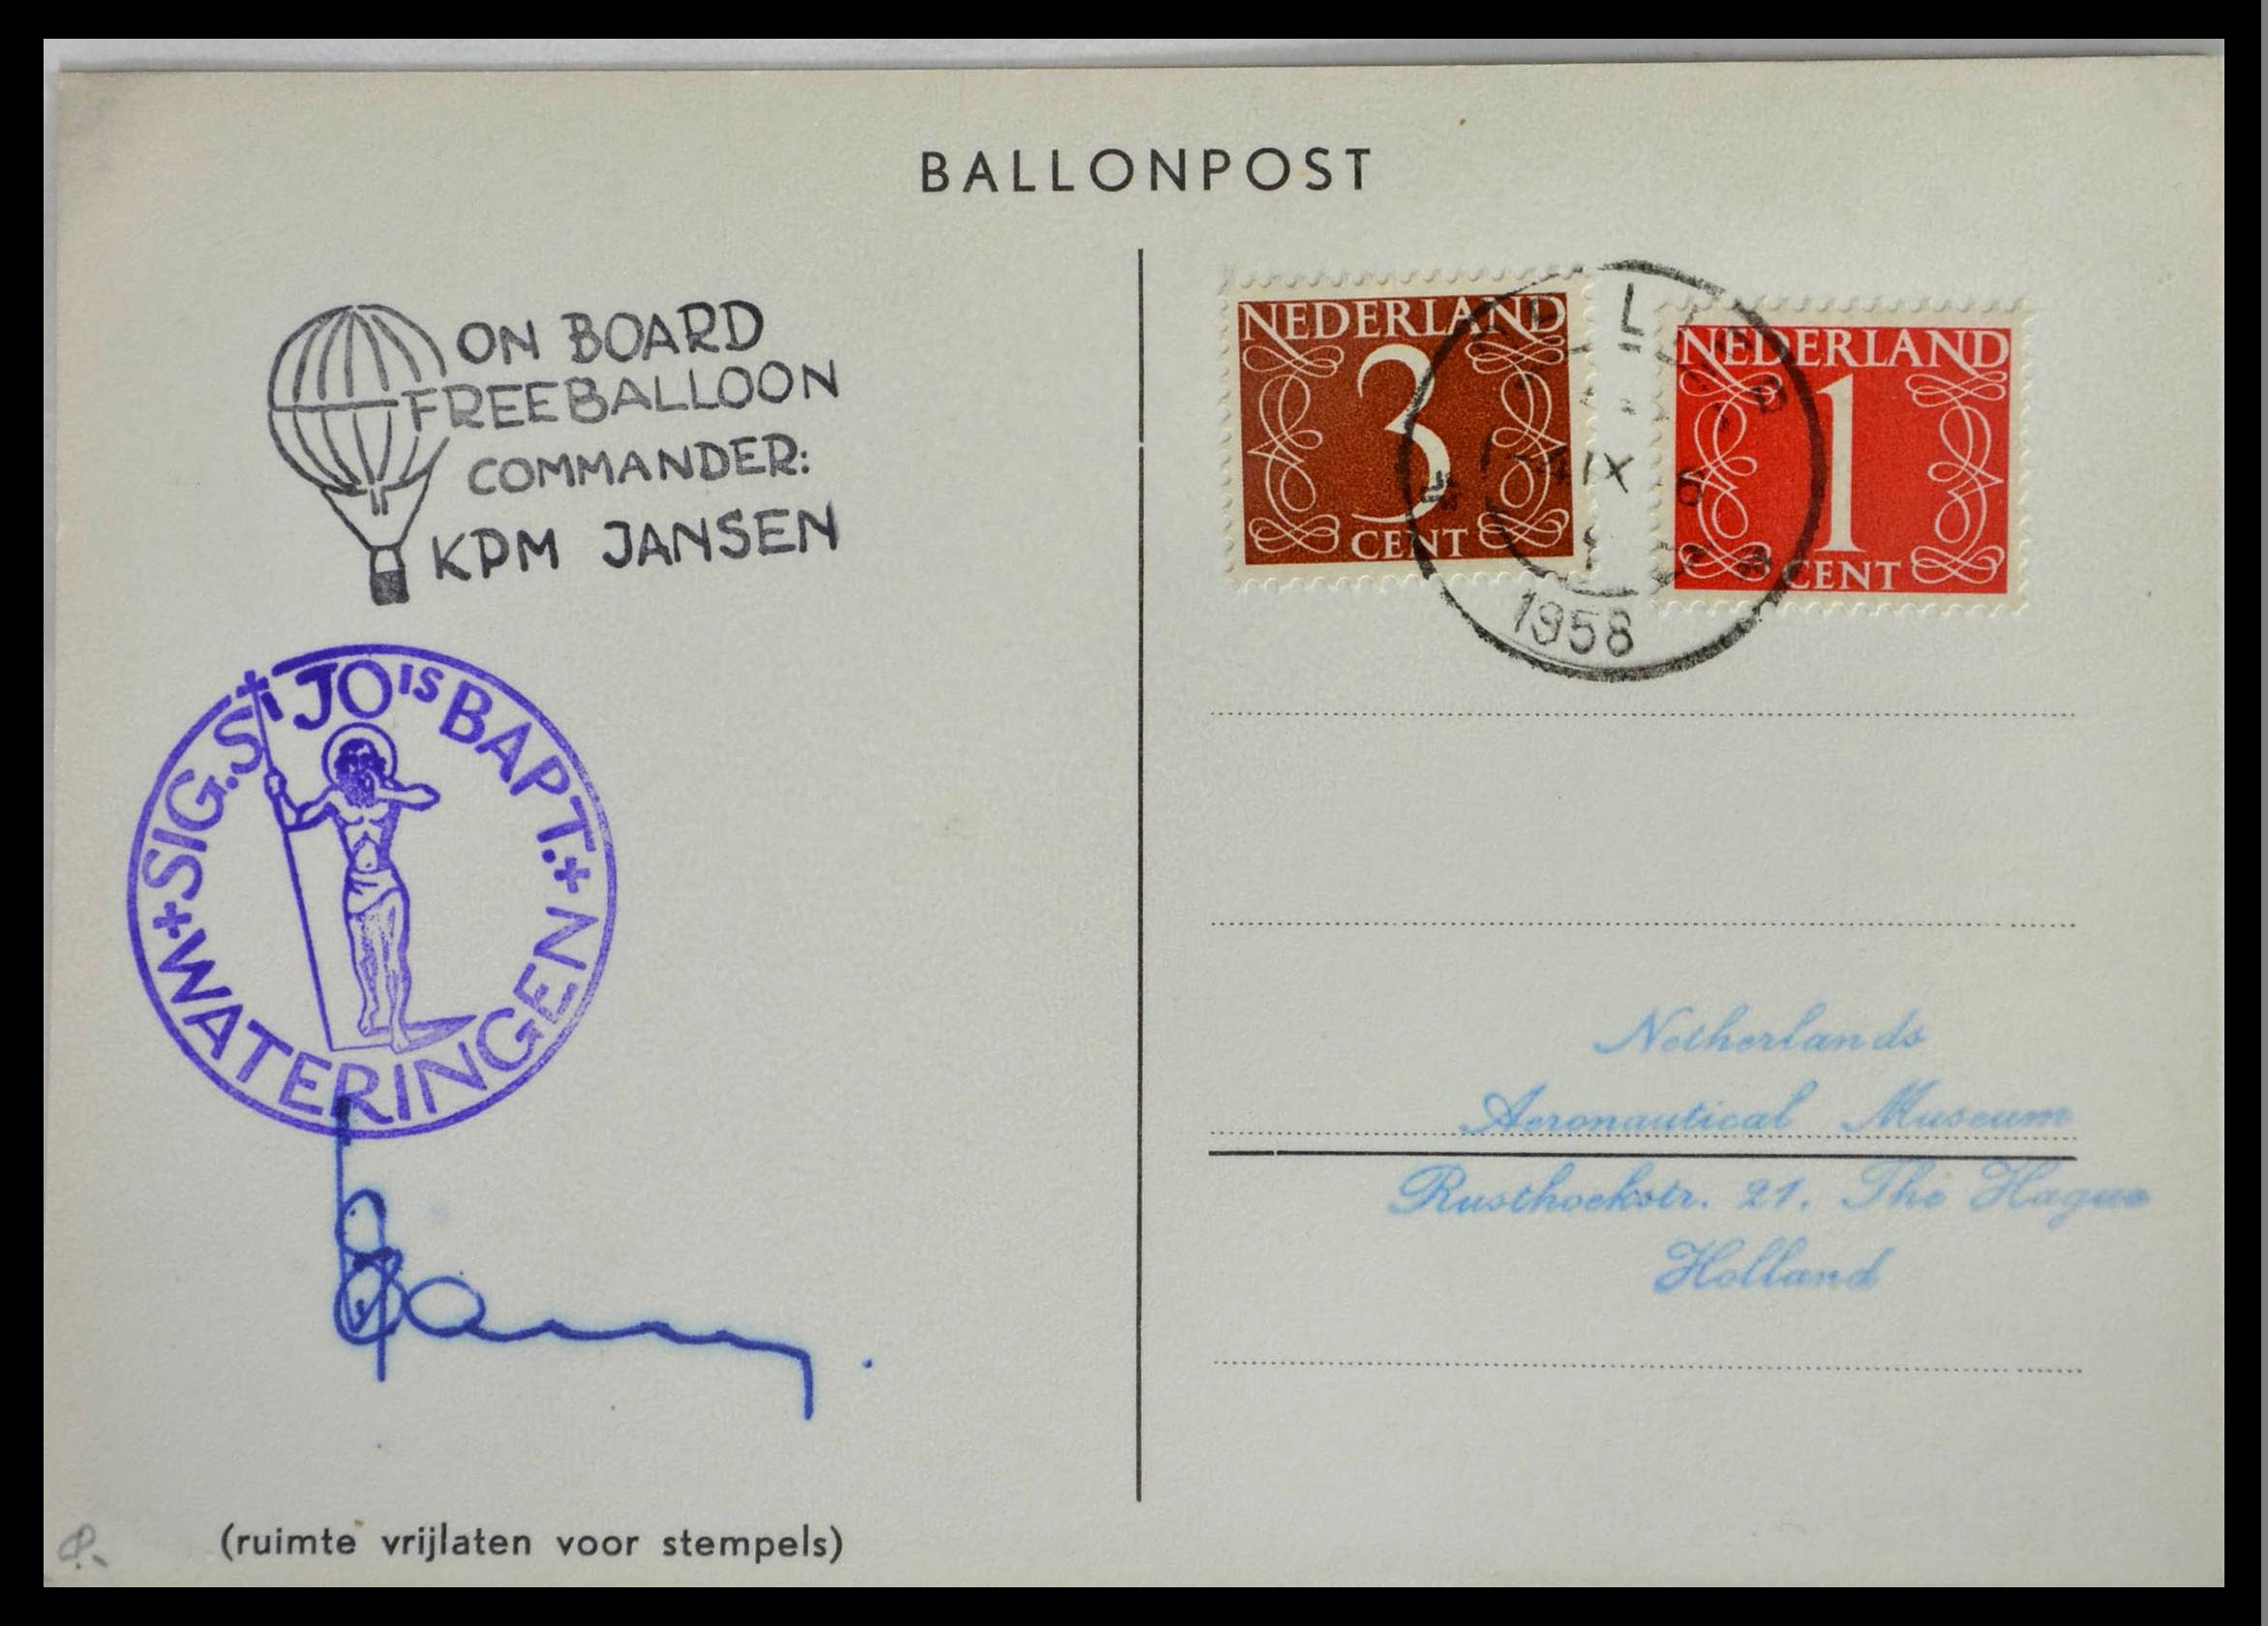 BALLONPOST
ON BOARD
FREEBALLOON
COMMANDER:
KPM JANSEN
NEDERLAND
3
CENT
NEDERLAND
1
CENT
IX
1958
+SIG. ST JOIS BAPT.+
WATERINGEN
Netherlands
Aeronautical Museum
Rusthoekstr. 21. The Hague
Holland
(ruimte vrijlaten voor stempels)